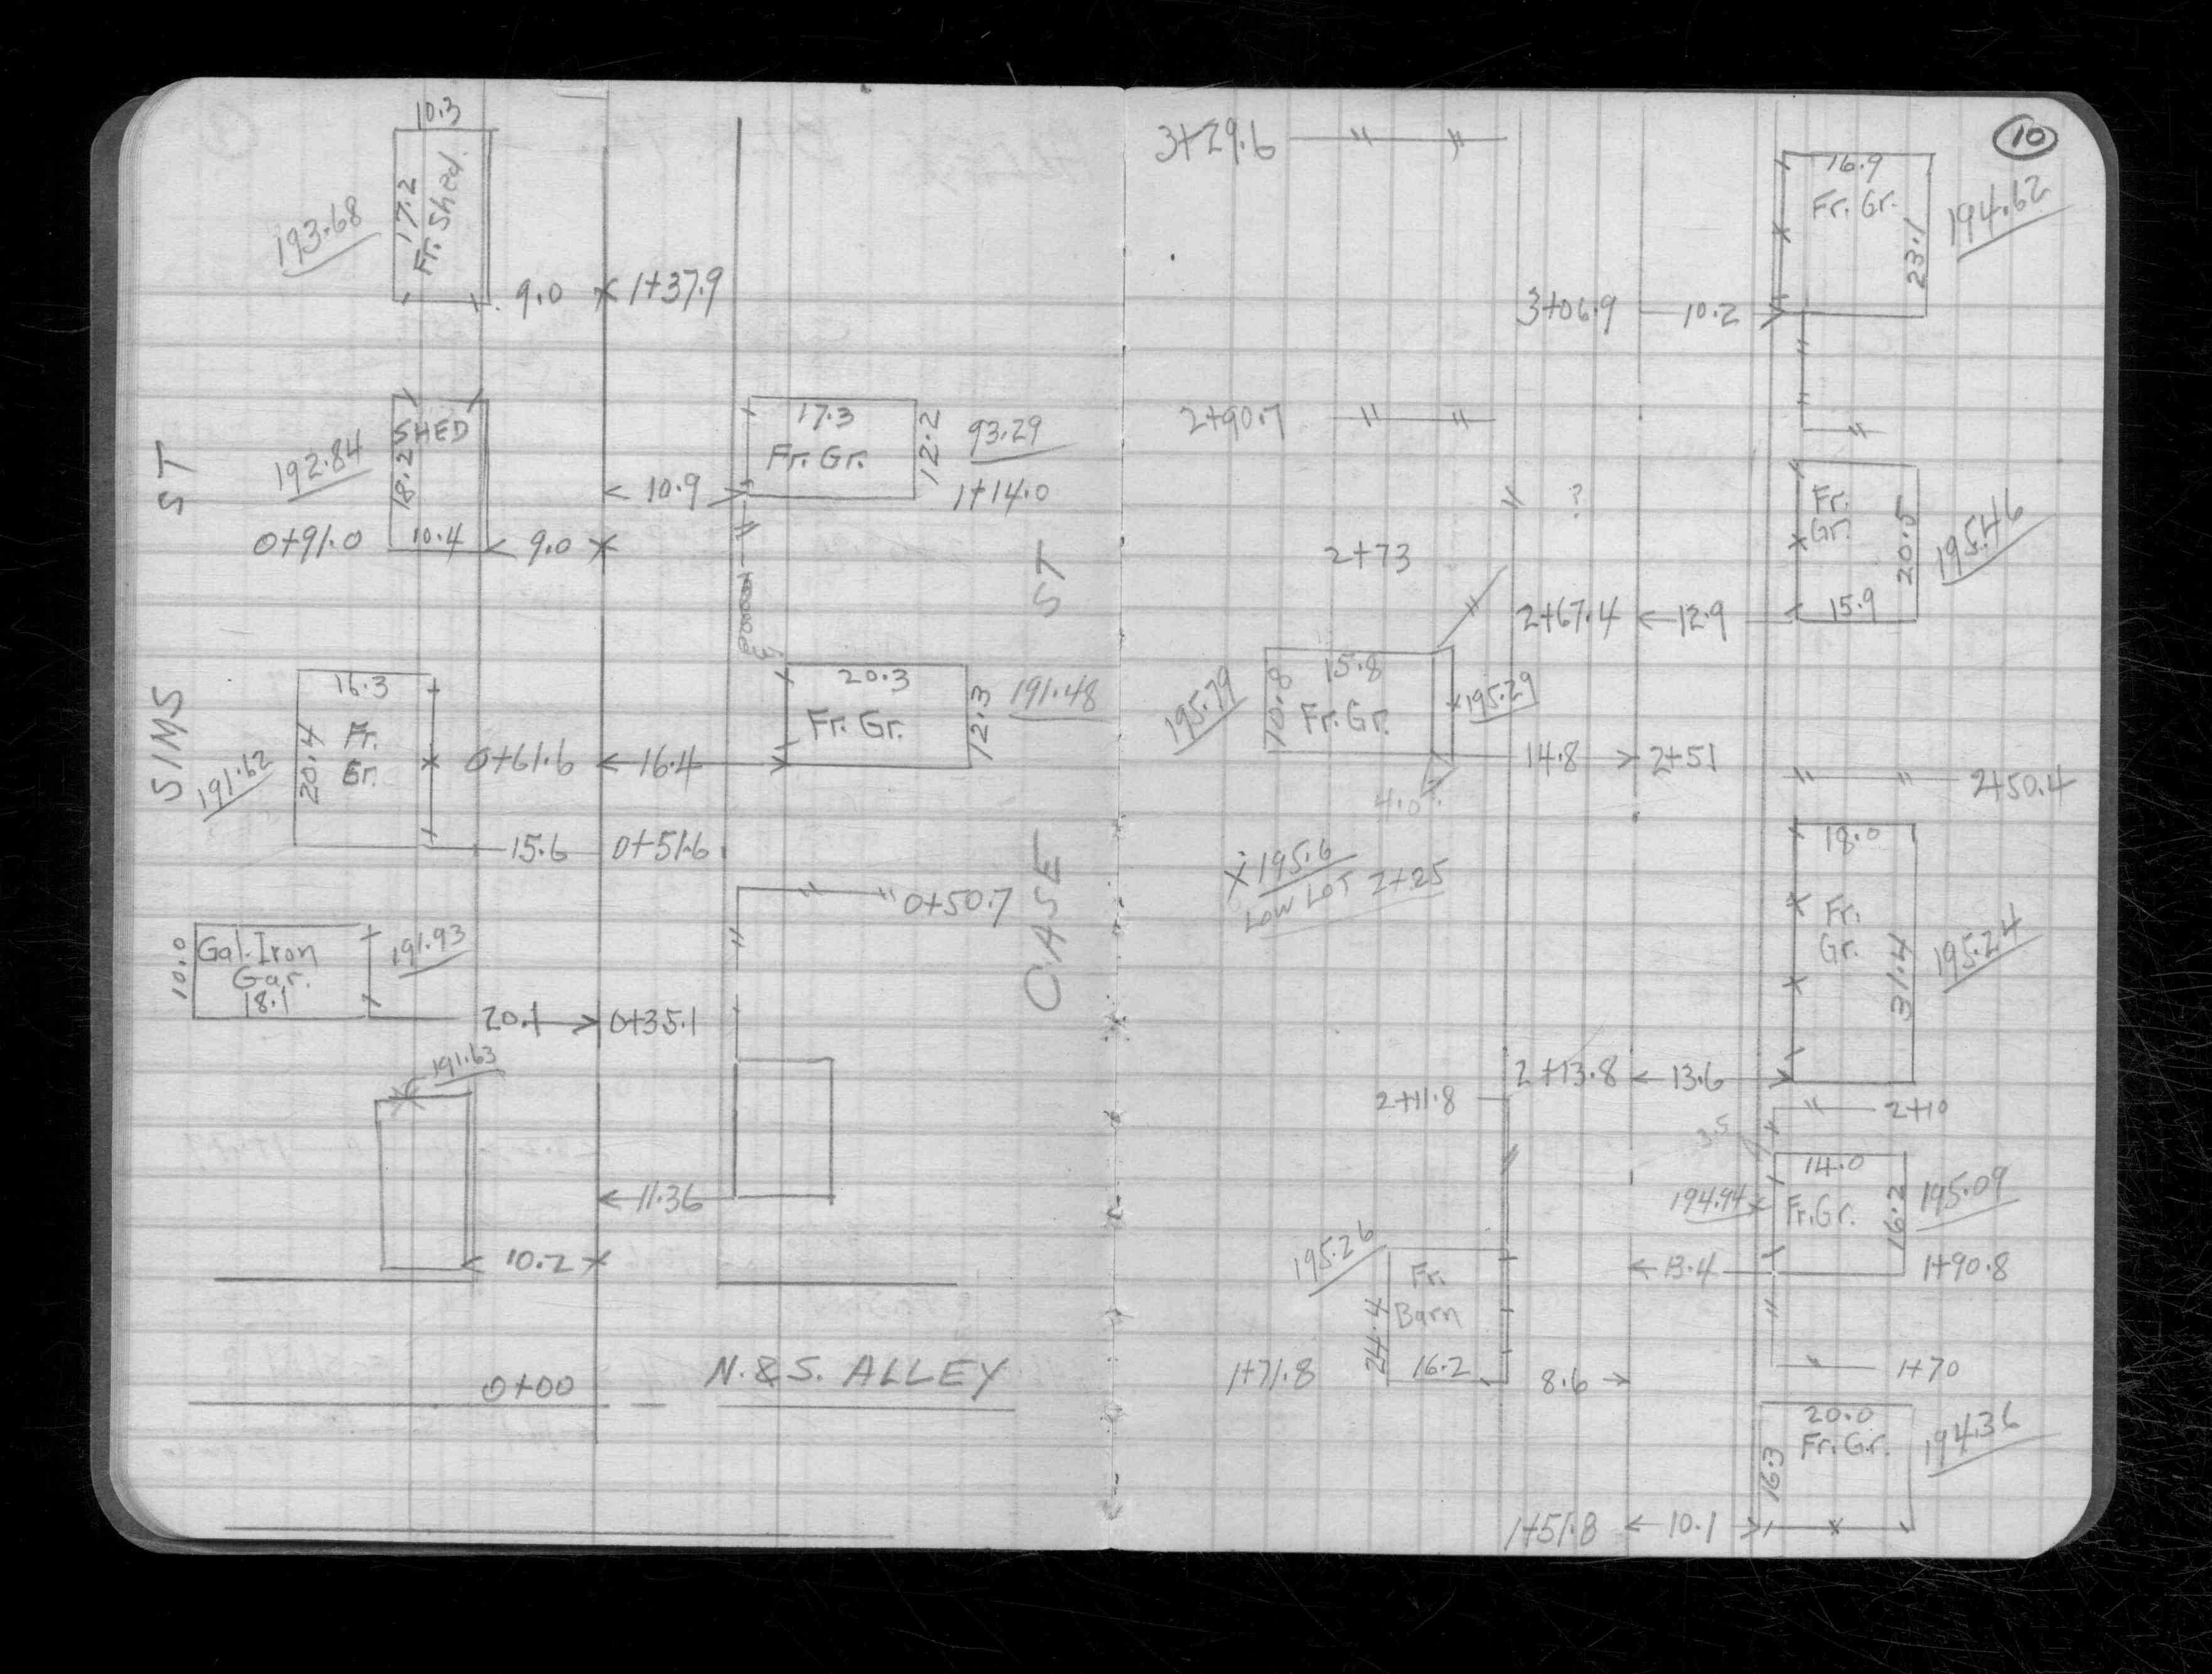 10.3
17.2
Fr. Shed.
193.68
9.0
1+37.9
ST
SHED
18.2
192.84
0+91.0
10.4
9.0
17.3
Fr. Gr.
12.2
93.29
10.9
1+14.0
ST
SIMS
16.3
20.4
Fr.
Gr.
191.62
0+61.6
16.4
20.3
Fr. Gr.
12.3
191.48
15.6
0+51.6
0+50.7
CASE
10.0
Gal. Iron
Gar.
18.1
191.93
20.1
0+35.1
191.63
11.36
10.2
0+00
N. & S. ALLEY
10
3+29.6
16.9
Fr. Gr.
23.1
194.62
3+06.9
10.2
2+90.7
?
Fr.
Gr.
20.5
195.46
15.9
2+73
2+67.4
12.9
195.79
10.8
15.8
Fr. Gr.
195.29
14.8
2+51
4.0
2+50.4
195.6
LOW LOT 2+25
18.0
Fr.
Gr.
31.4
195.24
2+13.8
13.6
2+11.8
2+10
3.5
14.0
Fr. Gr.
16.2
194.94
195.09
13.4
1+90.8
195.26
Fr.
Barn
24.4
16.2
1+71.8
8.6
1+70
20.0
Fr. Gr.
16.3
194.36
1+51.8
10.1